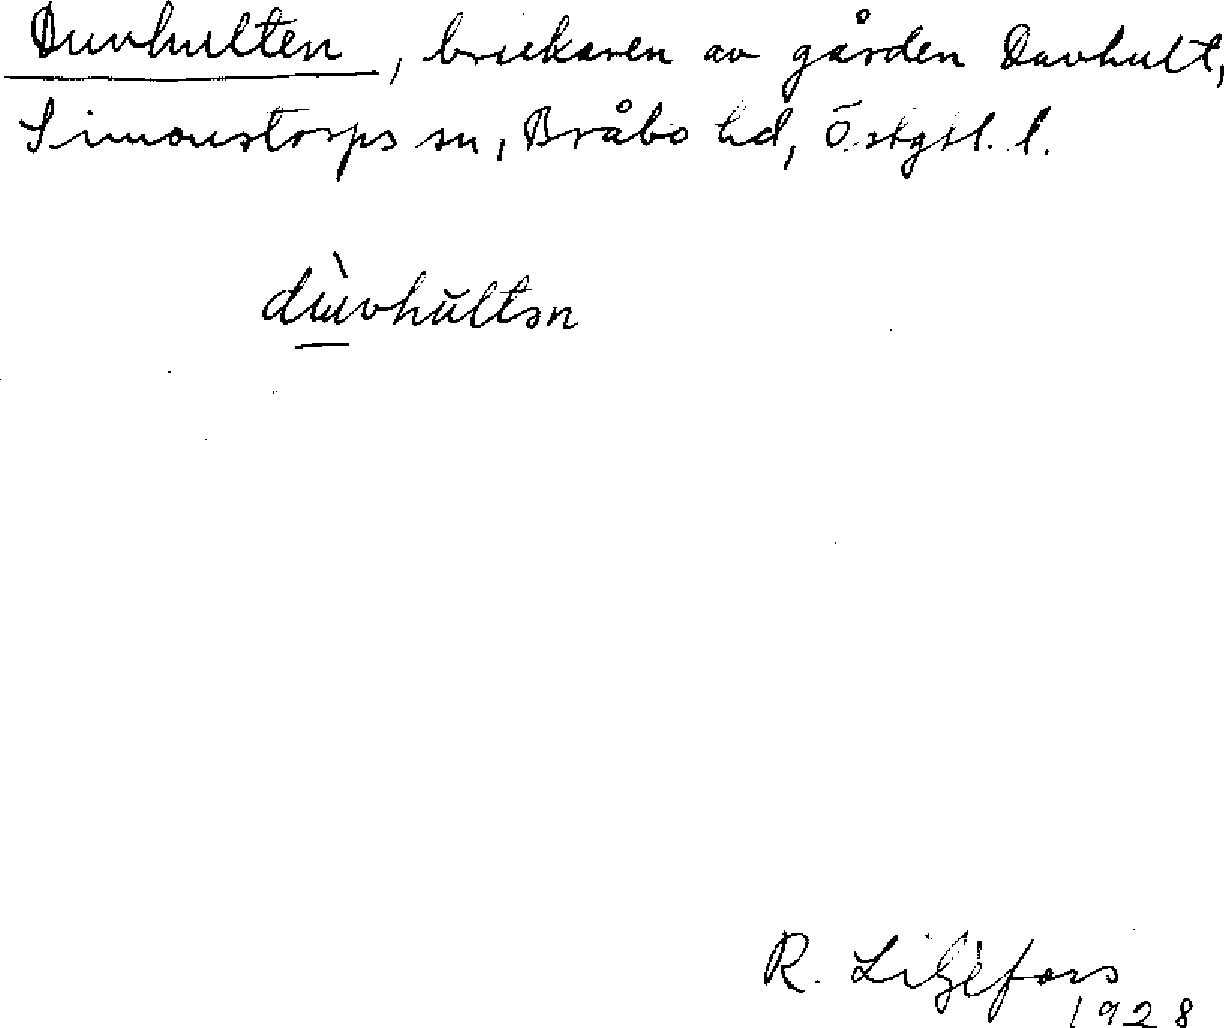 Duvhulten, brukaren av gården Duvhult,
Simonstorps sn, Bråbo hd, Östgtl. l.
dɯ̀vhŭltən
R. Liljefors
1928